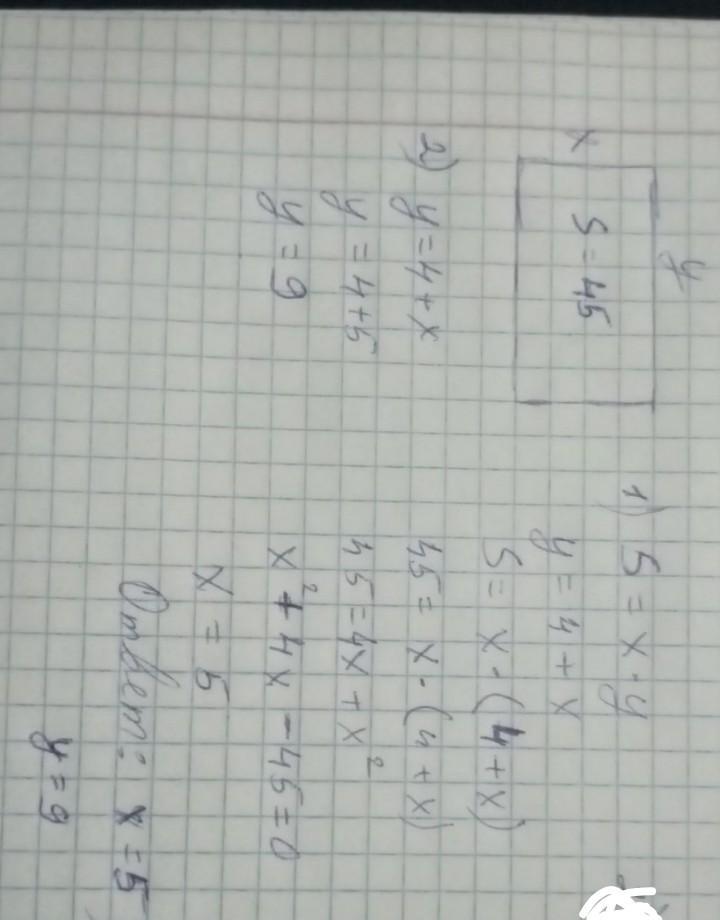 y
x
S = 45
1) S = x · y
y = 4 + x
S = x · (4 + x)
45 = x · (4 + x)
45 = 4x + x²
x² + 4x - 45 = 0
x = 5
2) y = 4 + x
y = 4 + 5
y = 9
Ответ: x = 5
y = 9